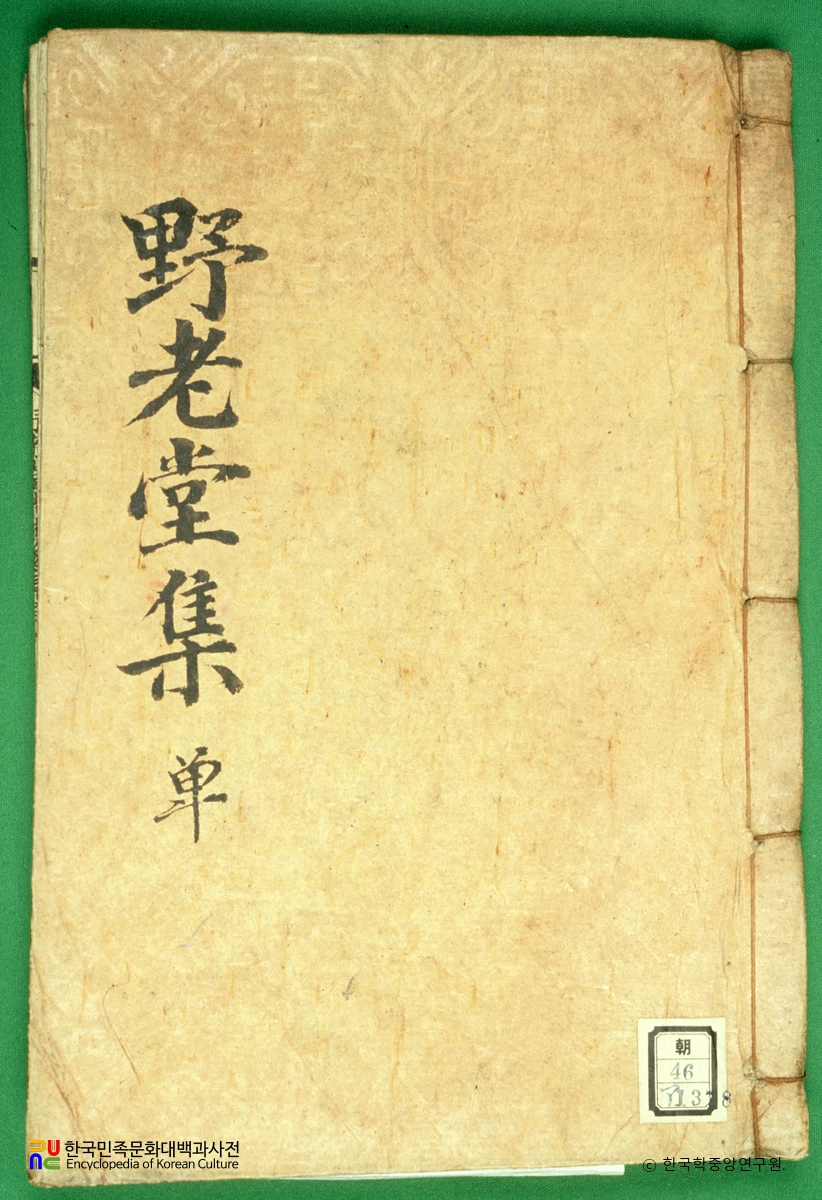 野老堂集
单
朝
46
378
한국민족문화대백과사전
Encyclopedia of Korean Culture
© 한국학중앙연구원.